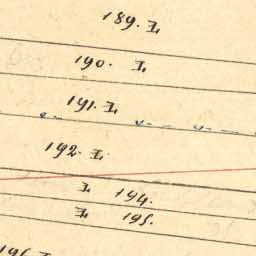 189. I.
190. I.
191. I.
192. I.
I. 194.
I. 195.
196. I.